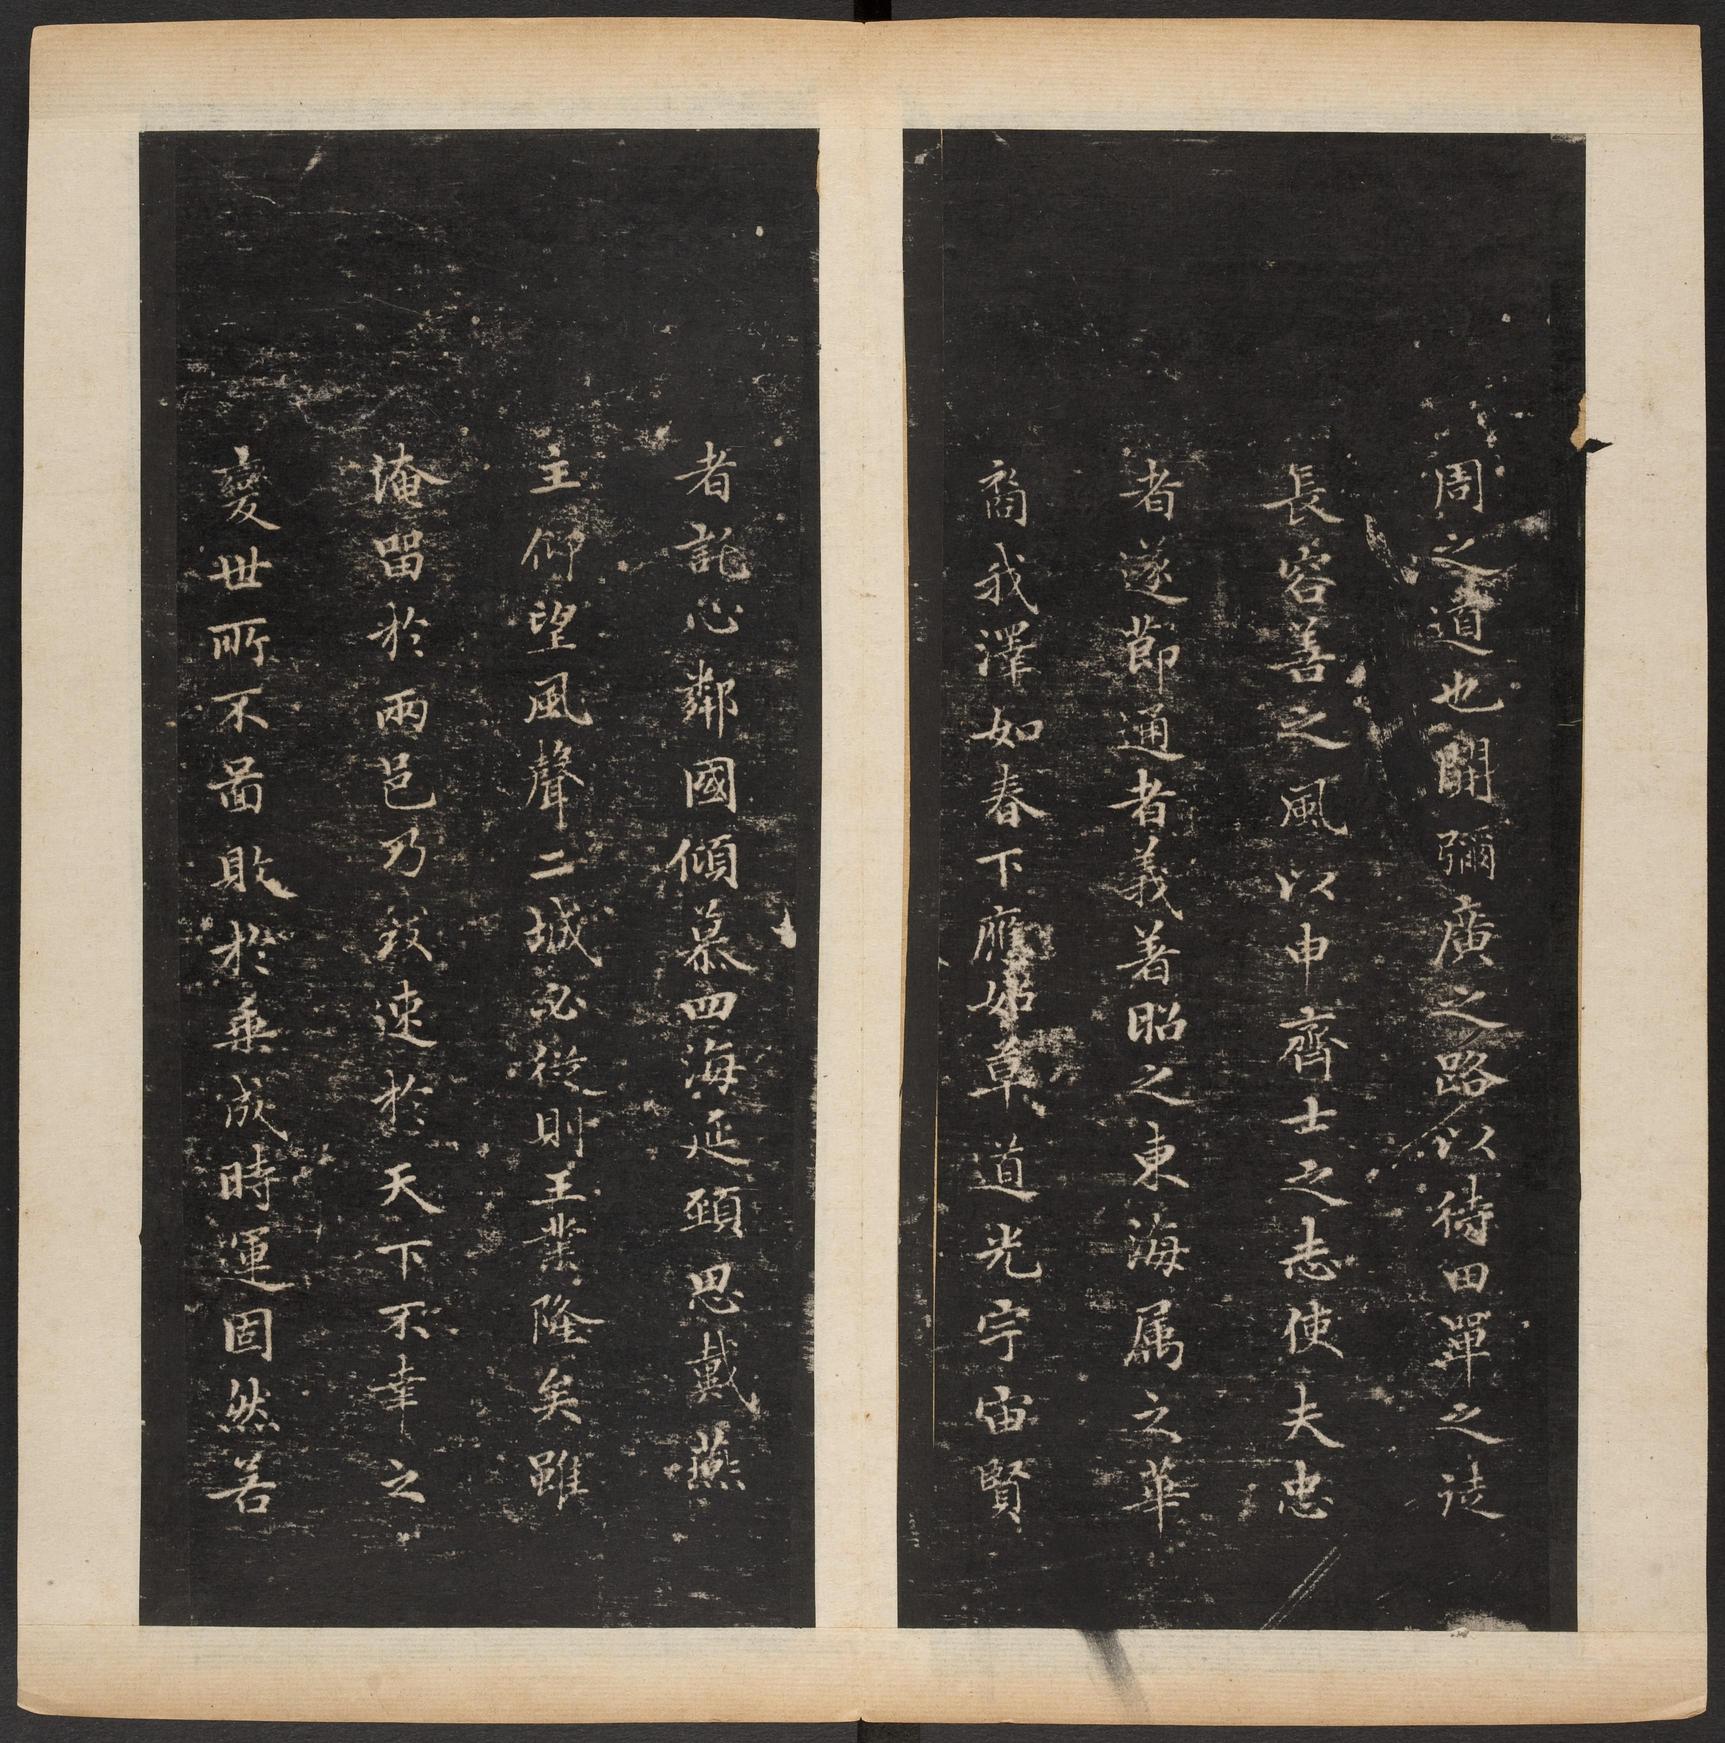 周之道也開彌廣之路以待田單之徒
長容善之風以申齊士之志使夫忠
者遂節通者義著昭之東海屬之華
裔我澤如春下應如草道光宇宙賢
者託心鄰國傾慕四海延頸思戴燕
主仰望風聲二城必從則王業隆矣雖
淹留於兩邑乃致速於天下不幸之
變世所不啚敗於垂成時運固然若